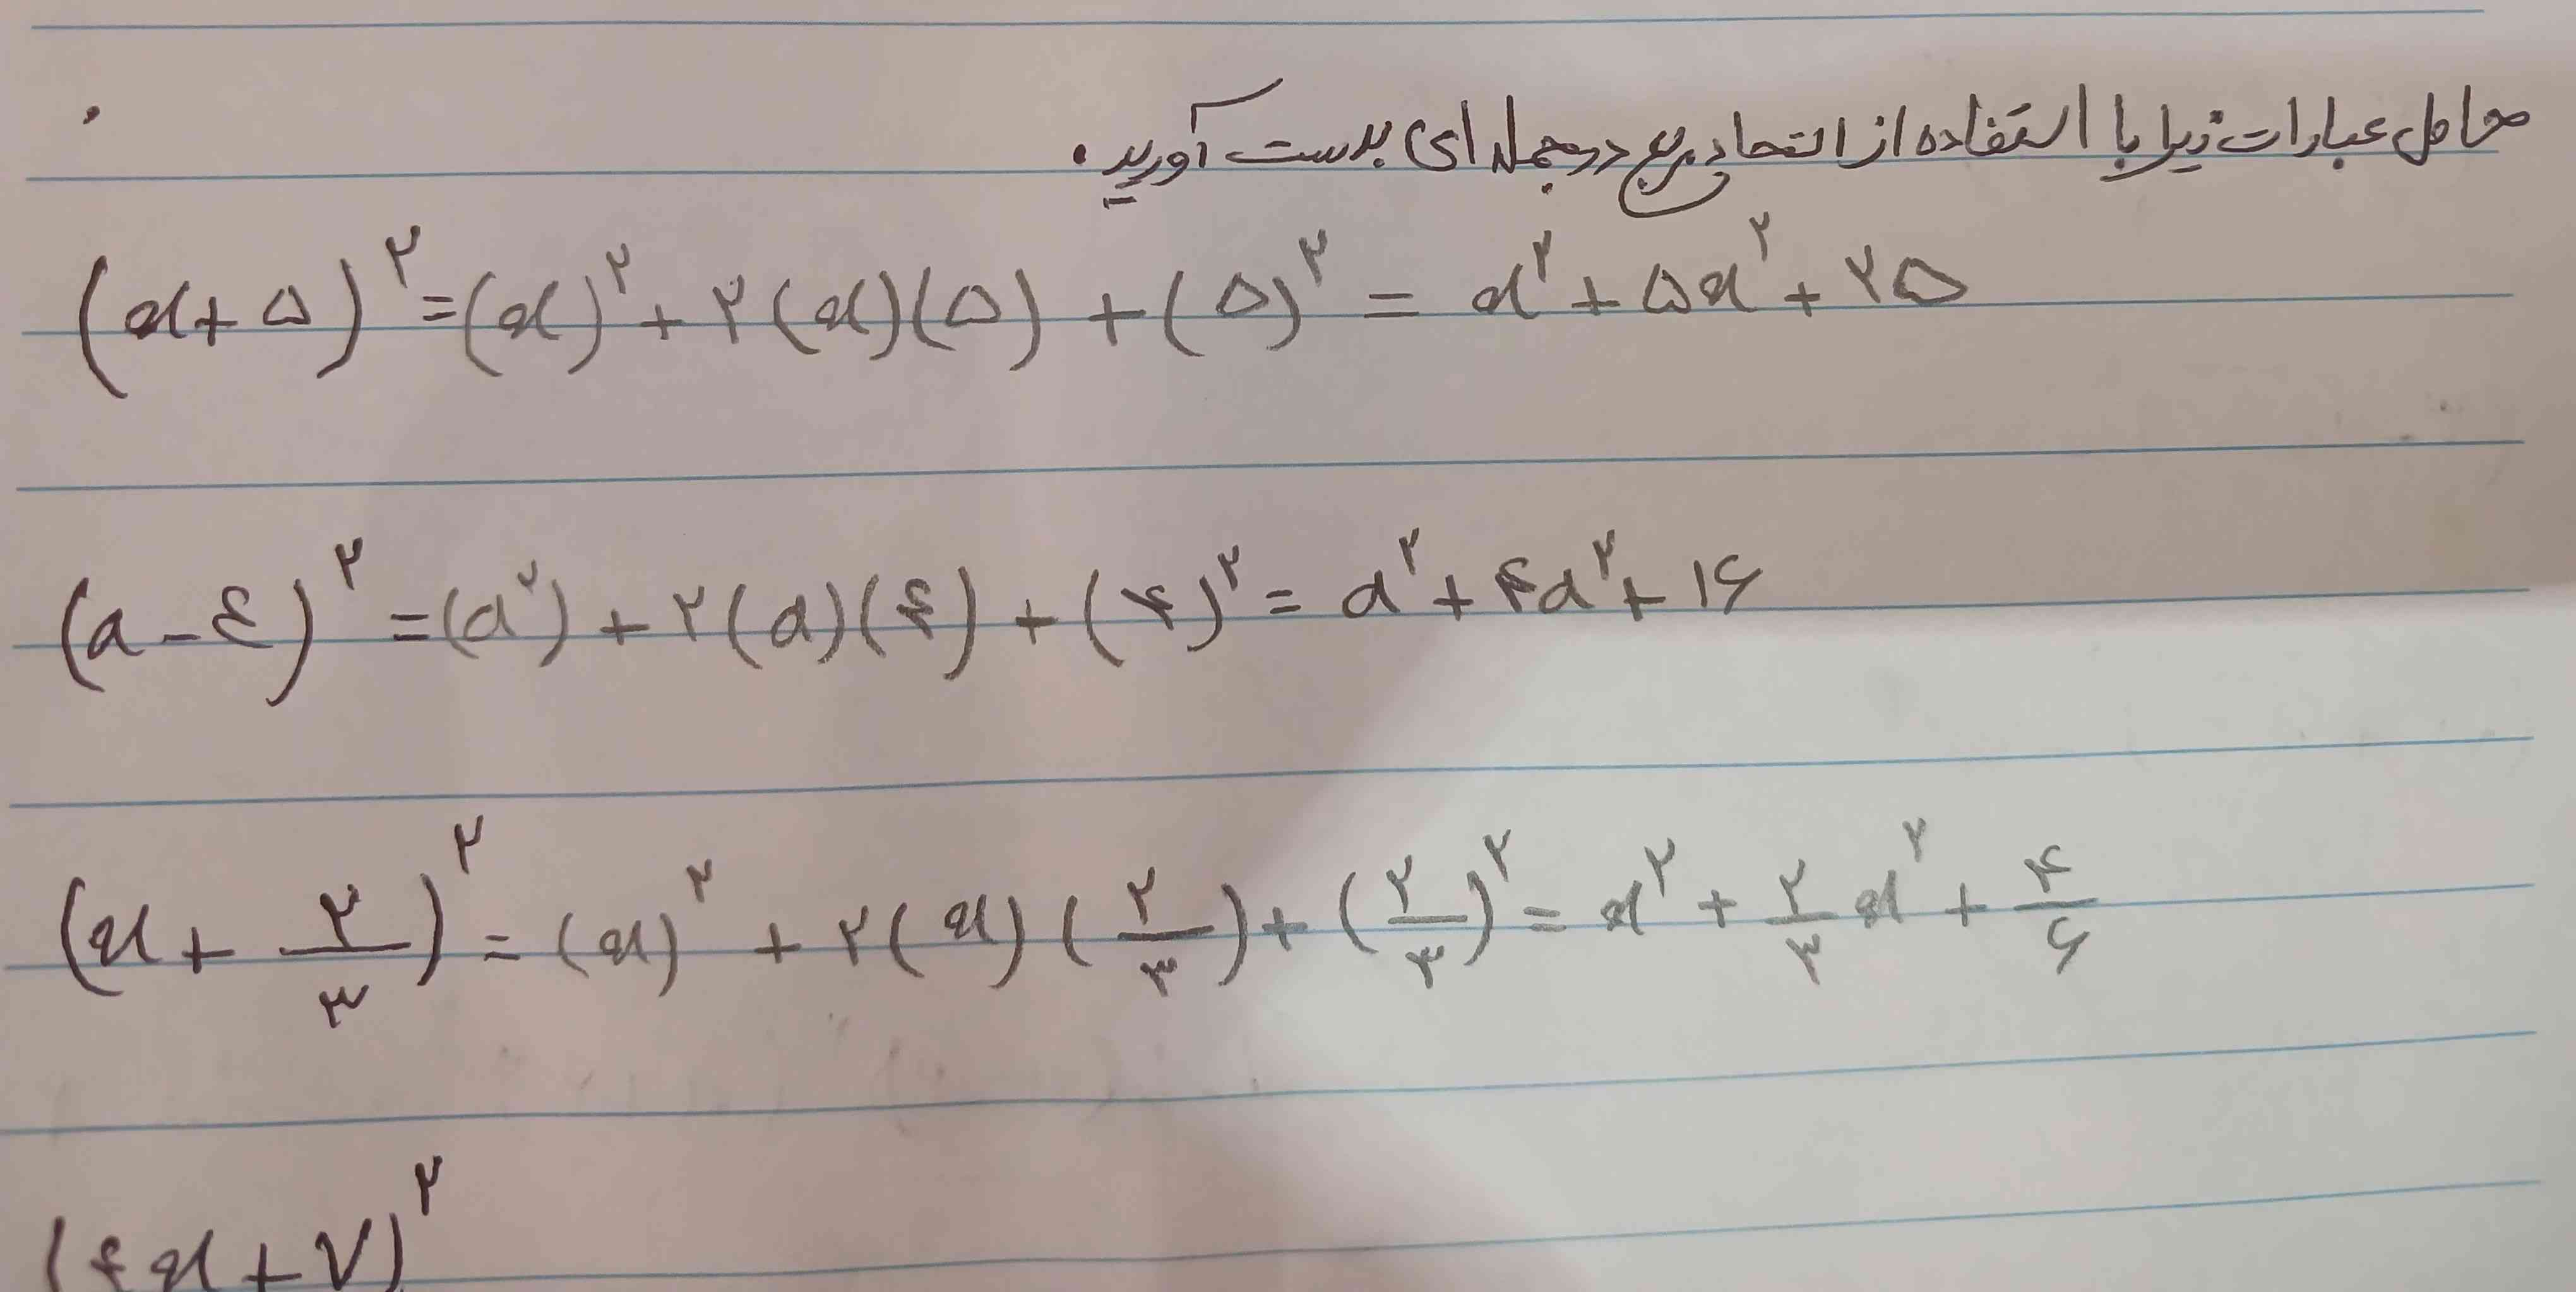 حاصل عبارات زیر با استفاده از اتحاد مربع دو جمله ای بدست آورید.
(x+۵)^۲ = (x)^۲ + ۲(x)(۵) + (۵)^۲ = x^۲ + ۵x^۲ + ۲۵
(a-٤)^۲ = (a^۲) + ۲(a)(۴) + (۴)^۲ = a^۲ + ۴a^۲ + ۱۶
(x + ۲/۳)^۲ = (x)^۲ + ۲(x)(۲/۳) + (۲/۳)^۲ = x^۲ + ۲/۳ x^۲ + ۴/۶
(۴x+۷)^۲